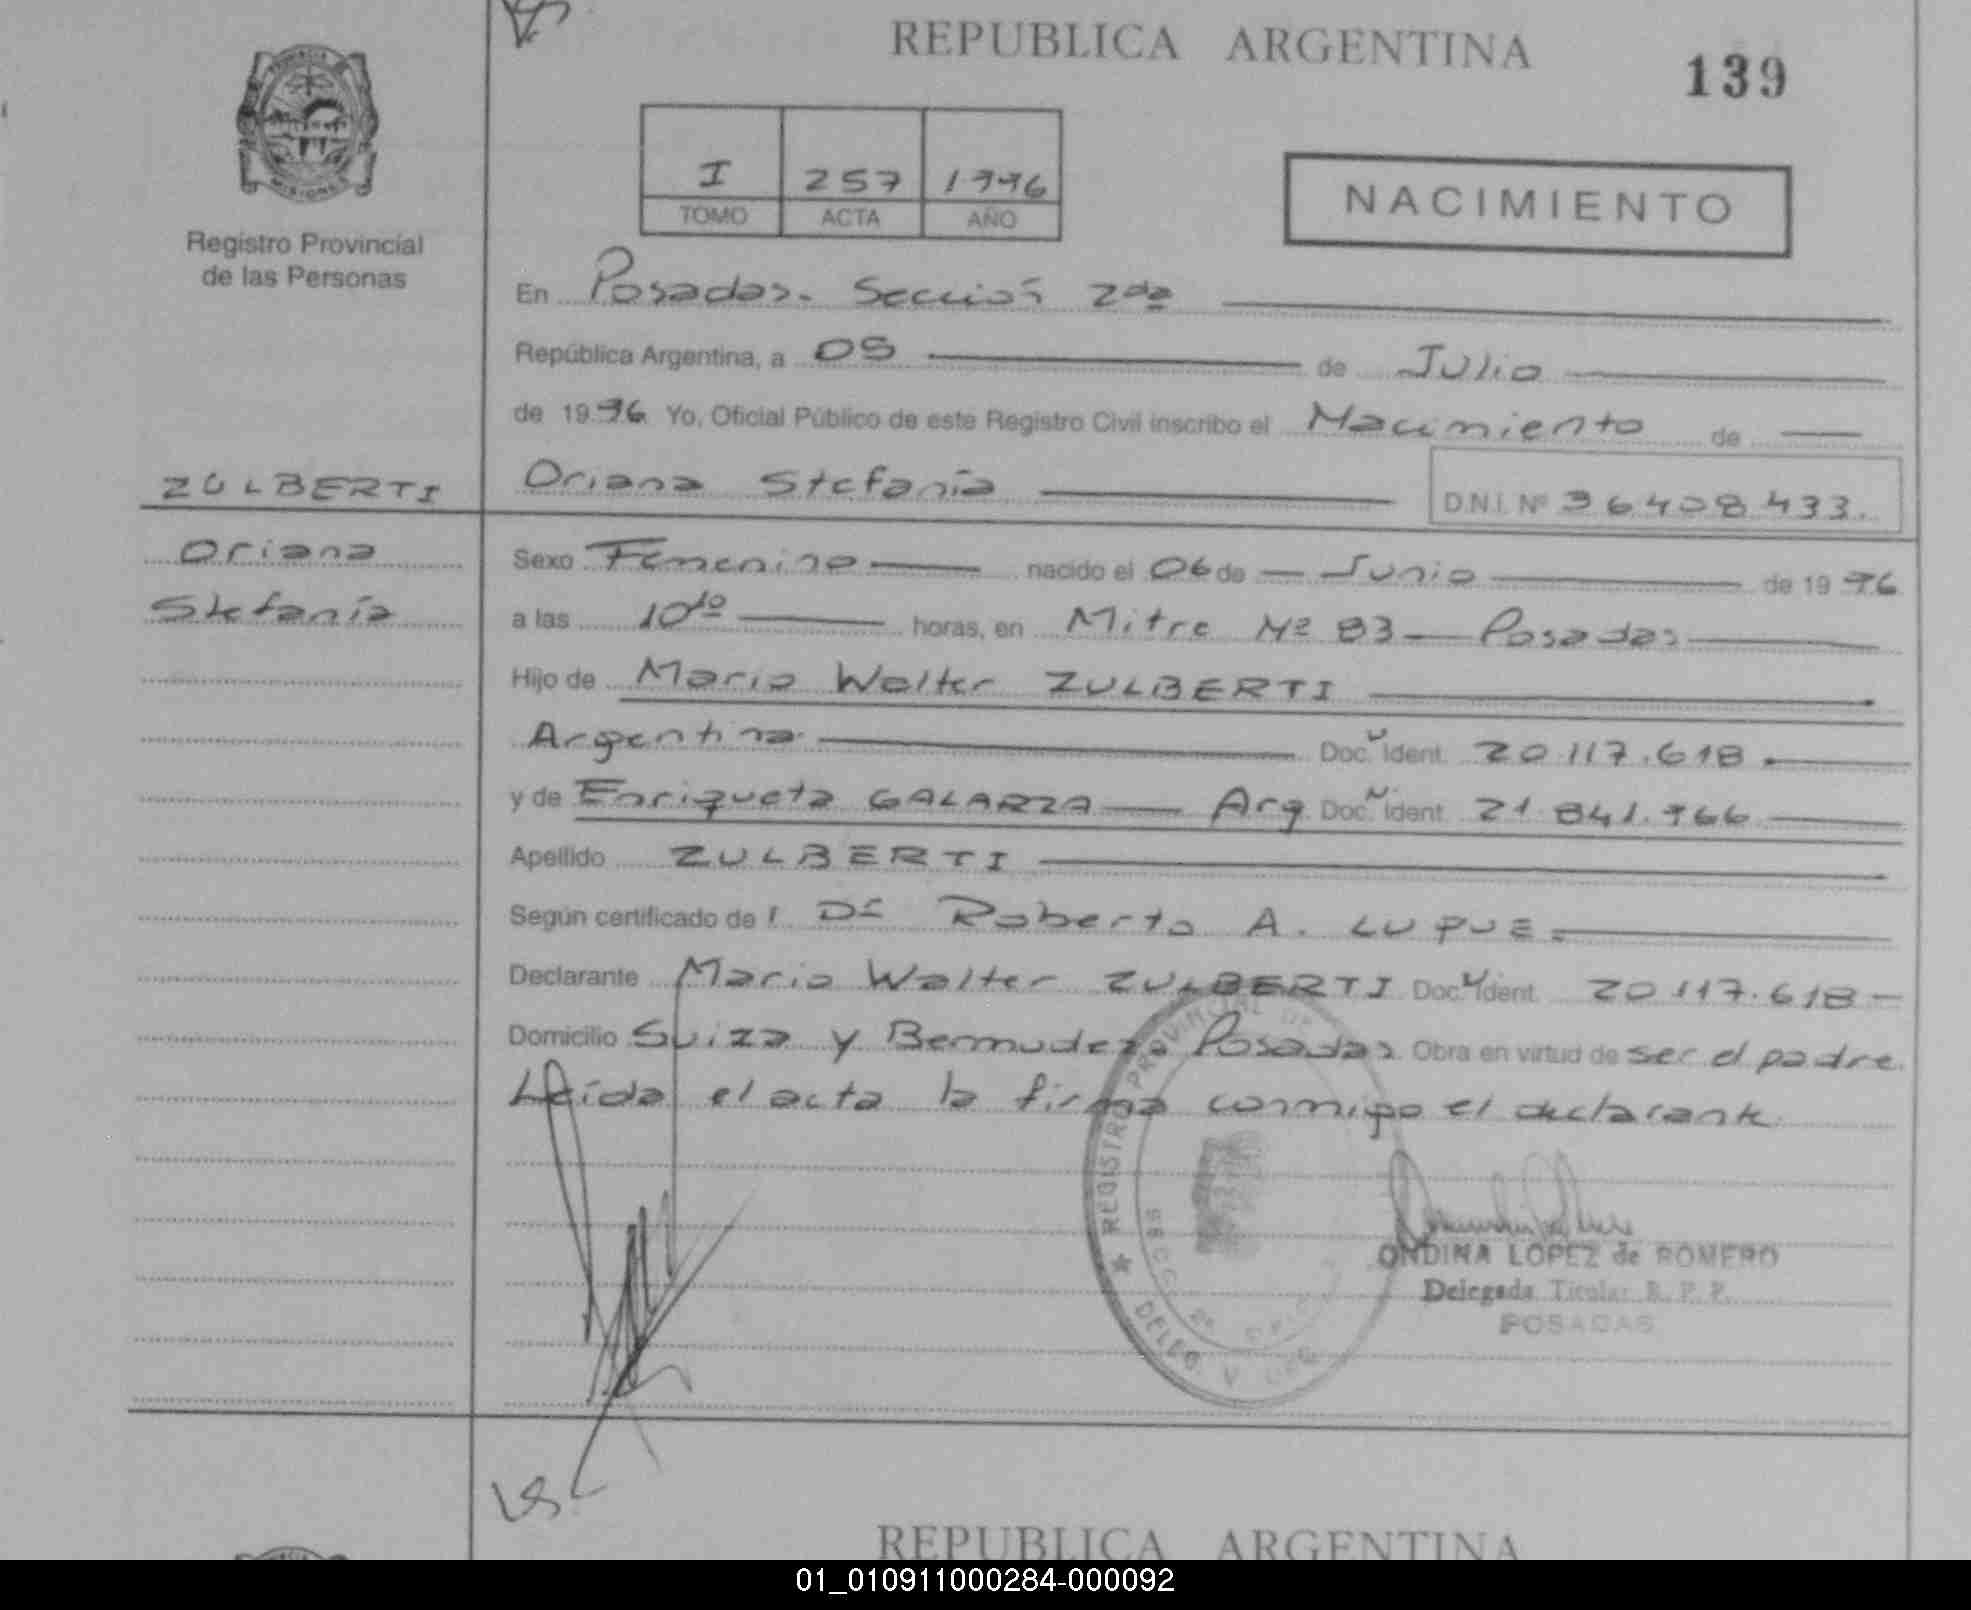 REPUBLICA ARGENTINA
139
PROVINCIA
MISIONES
Registro Provincial
de las Personas
I 257 1996
TOMO ACTA AÑO
NACIMIENTO
En Posadas. Sección 2da
República Argentina, a 05 de Julio
de 1996 Yo, Oficial Público de este Registro Civil inscribo el Nacimiento de
ZULBERTI
Oriana
Stefanía
Oriana Stefanía D.N.I. Nº 36408433.
Sexo Femenino nacido el 06 de Junio de 1996
a las 10 horas, en Mitre Nº 83 Posadas
Hijo de Mario Walter ZULBERTI
Argentina Doc. Ident. 20.117.618
y de Enriqueta GALARZA Arg. Doc. Ident. 21.841.966
Apellido ZULBERTI
Según certificado de l Dr Roberto A. LUPUE.
Declarante Mario Walter ZULBERTI Doc. Ident. 20.117.618
Domicilio Suiza y Bermudez. Posadas Obra en virtud de ser el padre.
Leída el acta la firma conmigo el declarante
REGISTRO PROVINCIAL DE
ONDINA LOPEZ de ROMERO
Delegada Titular R. P. P.
POSADAS
REPUBLICA ARGENTINA
01_010911000284-000092